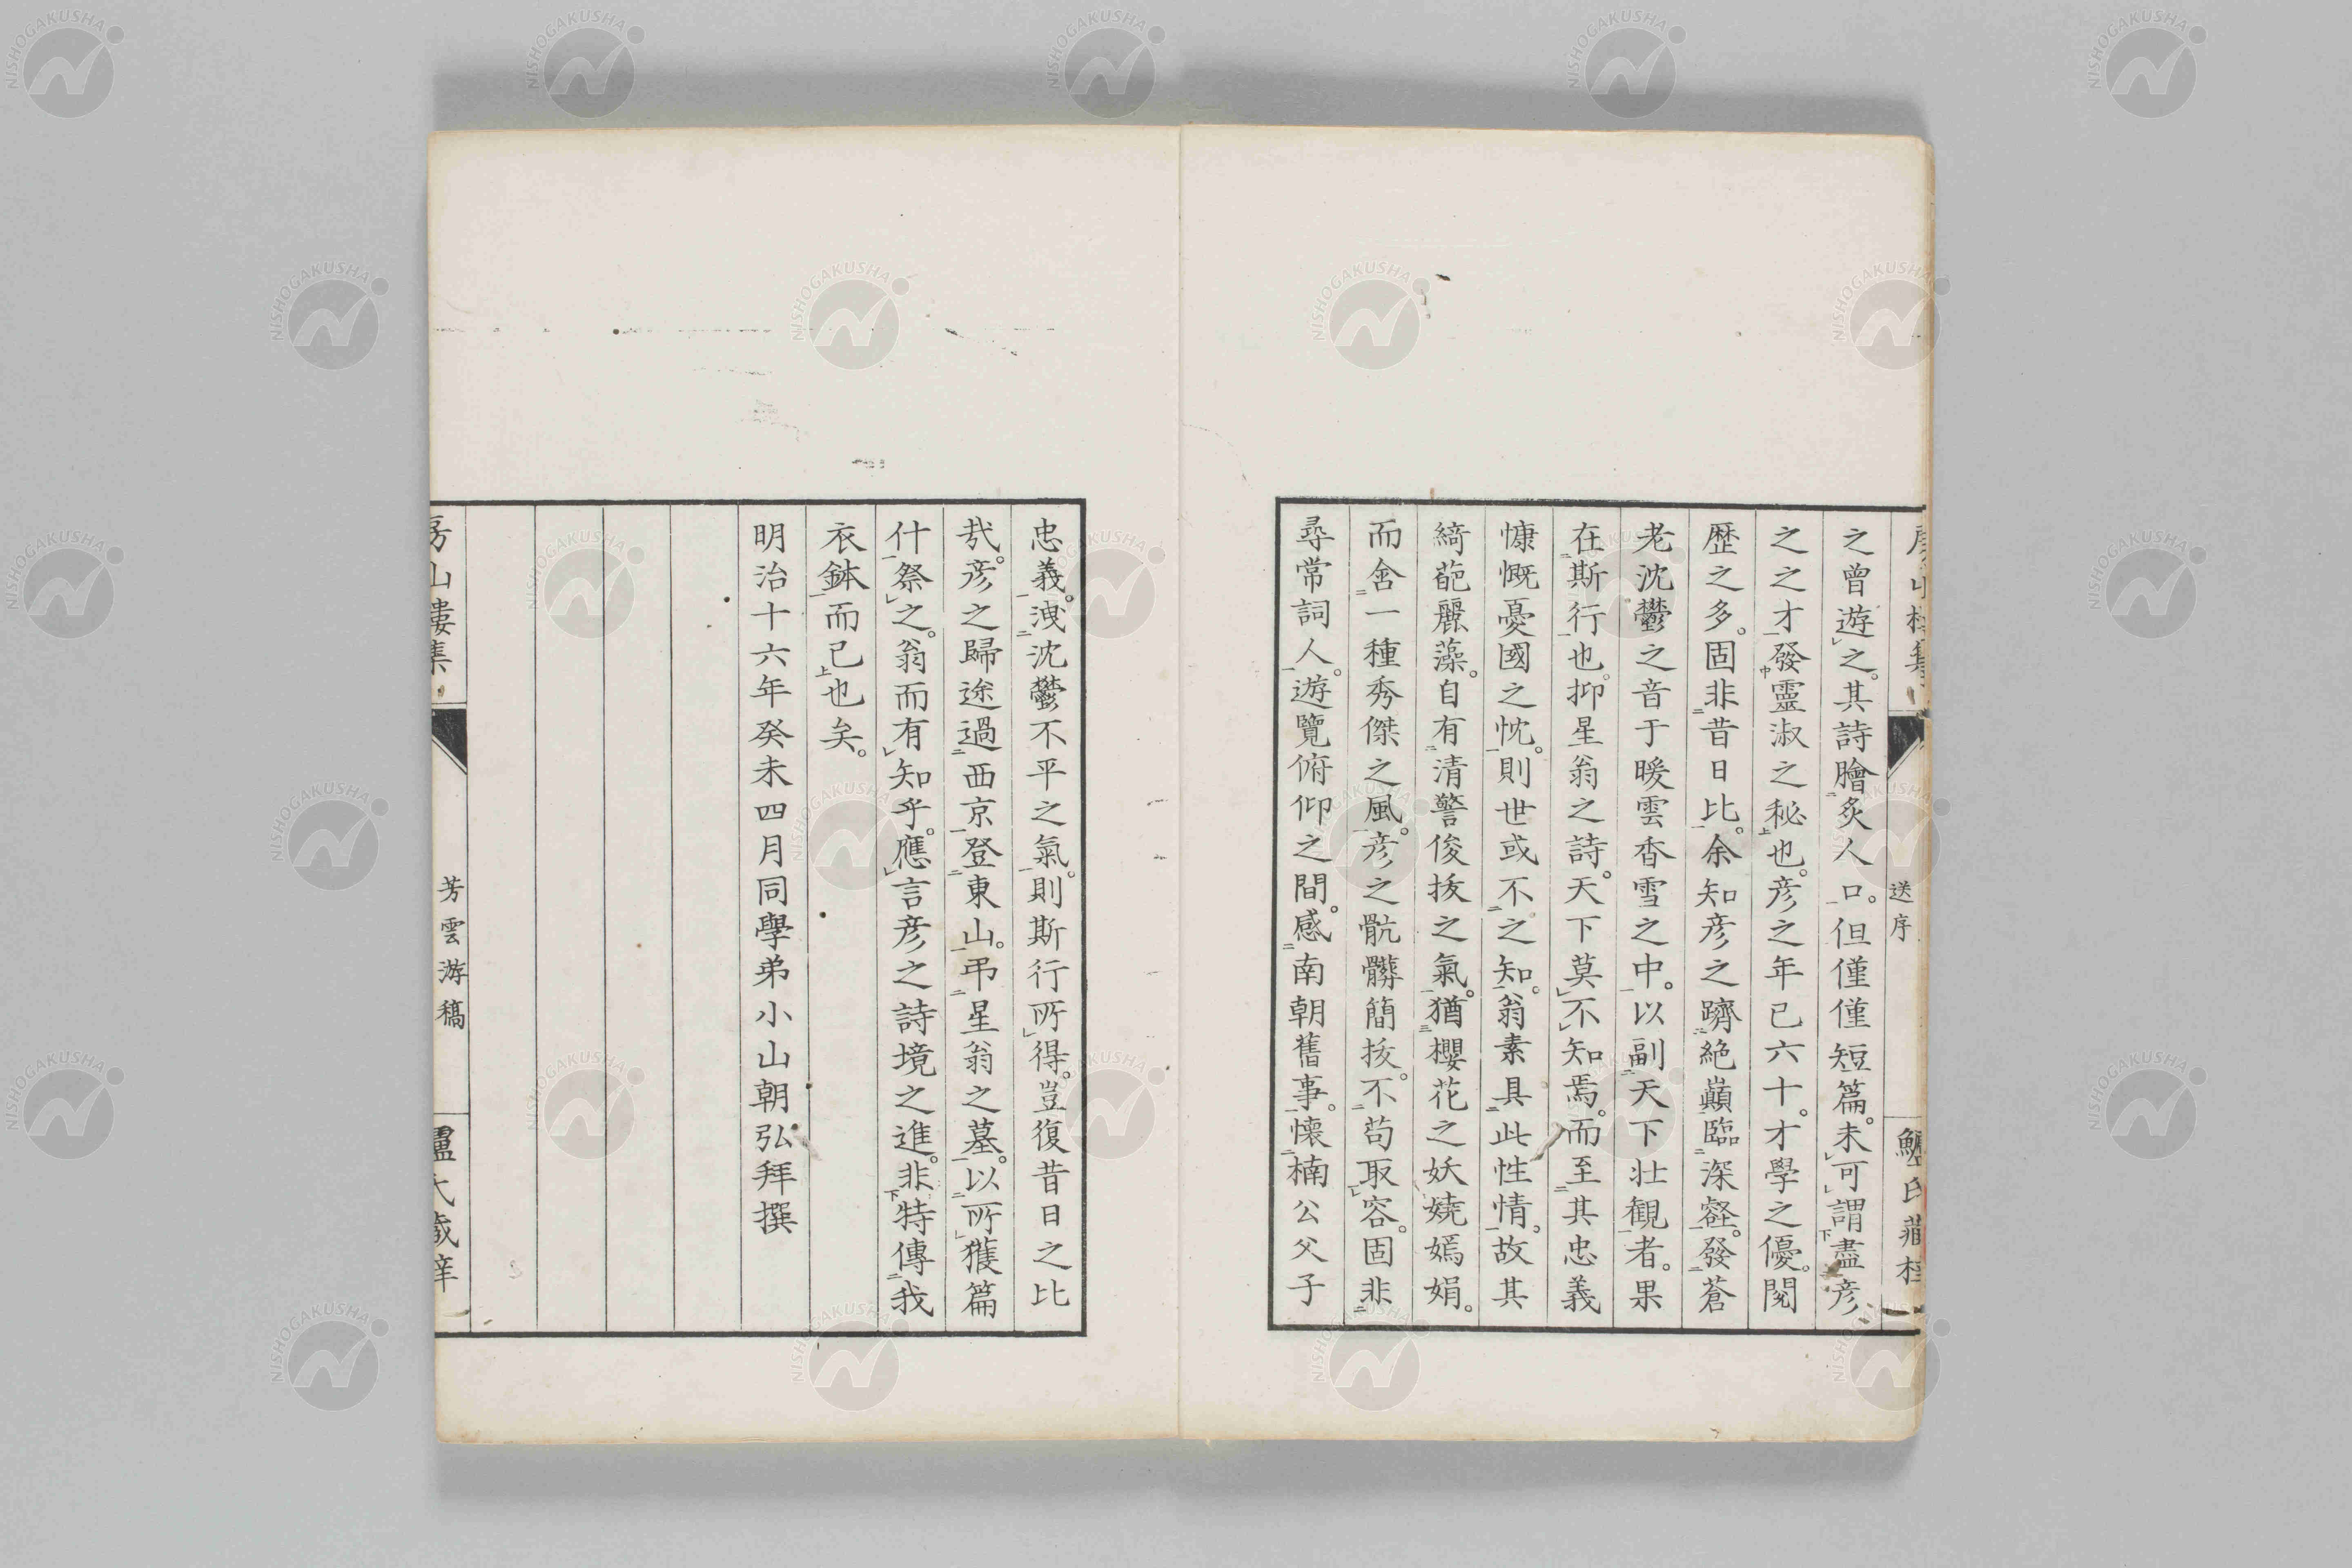 送序
之曾遊之。其詩膾炙人口。但僅僅短篇。未可謂盡彦
之之才發靈淑之秘也。彦之年已六十。才學之優。閱
歷之多。固非昔日比。余知彦之躋絶巓臨深壑。發蒼
老沈鬱之音于暖雲香雪之中。以副天下壯觀者。果
在斯行也。抑星翁之詩。天下莫不知焉。而至其忠義
慷慨憂國之忱。則世或不之知。翁素具此性情。故其
綺葩麗藻。自有清警俊拔之氣。猶櫻花之妖嬈嫣娟。
而含一種秀傑之風。彦之骯髒簡拔。不苟取容。固非
尋常詞人。遊覽俯仰之間。感南朝舊事。懷楠公父子
忠義。洩沈鬱不平之氣。則斯行所得。豈復昔日之比
哉。彦之歸途過西京登東山。弔星翁之墓。以所獲篇
什祭之。翁而有知乎。應言彦之詩境之進。非特傳我
衣鉢而已也矣。
明治十六年癸未四月同學弟小山朝弘拜撰
芳雲游稿
NISHOGAKUSHA